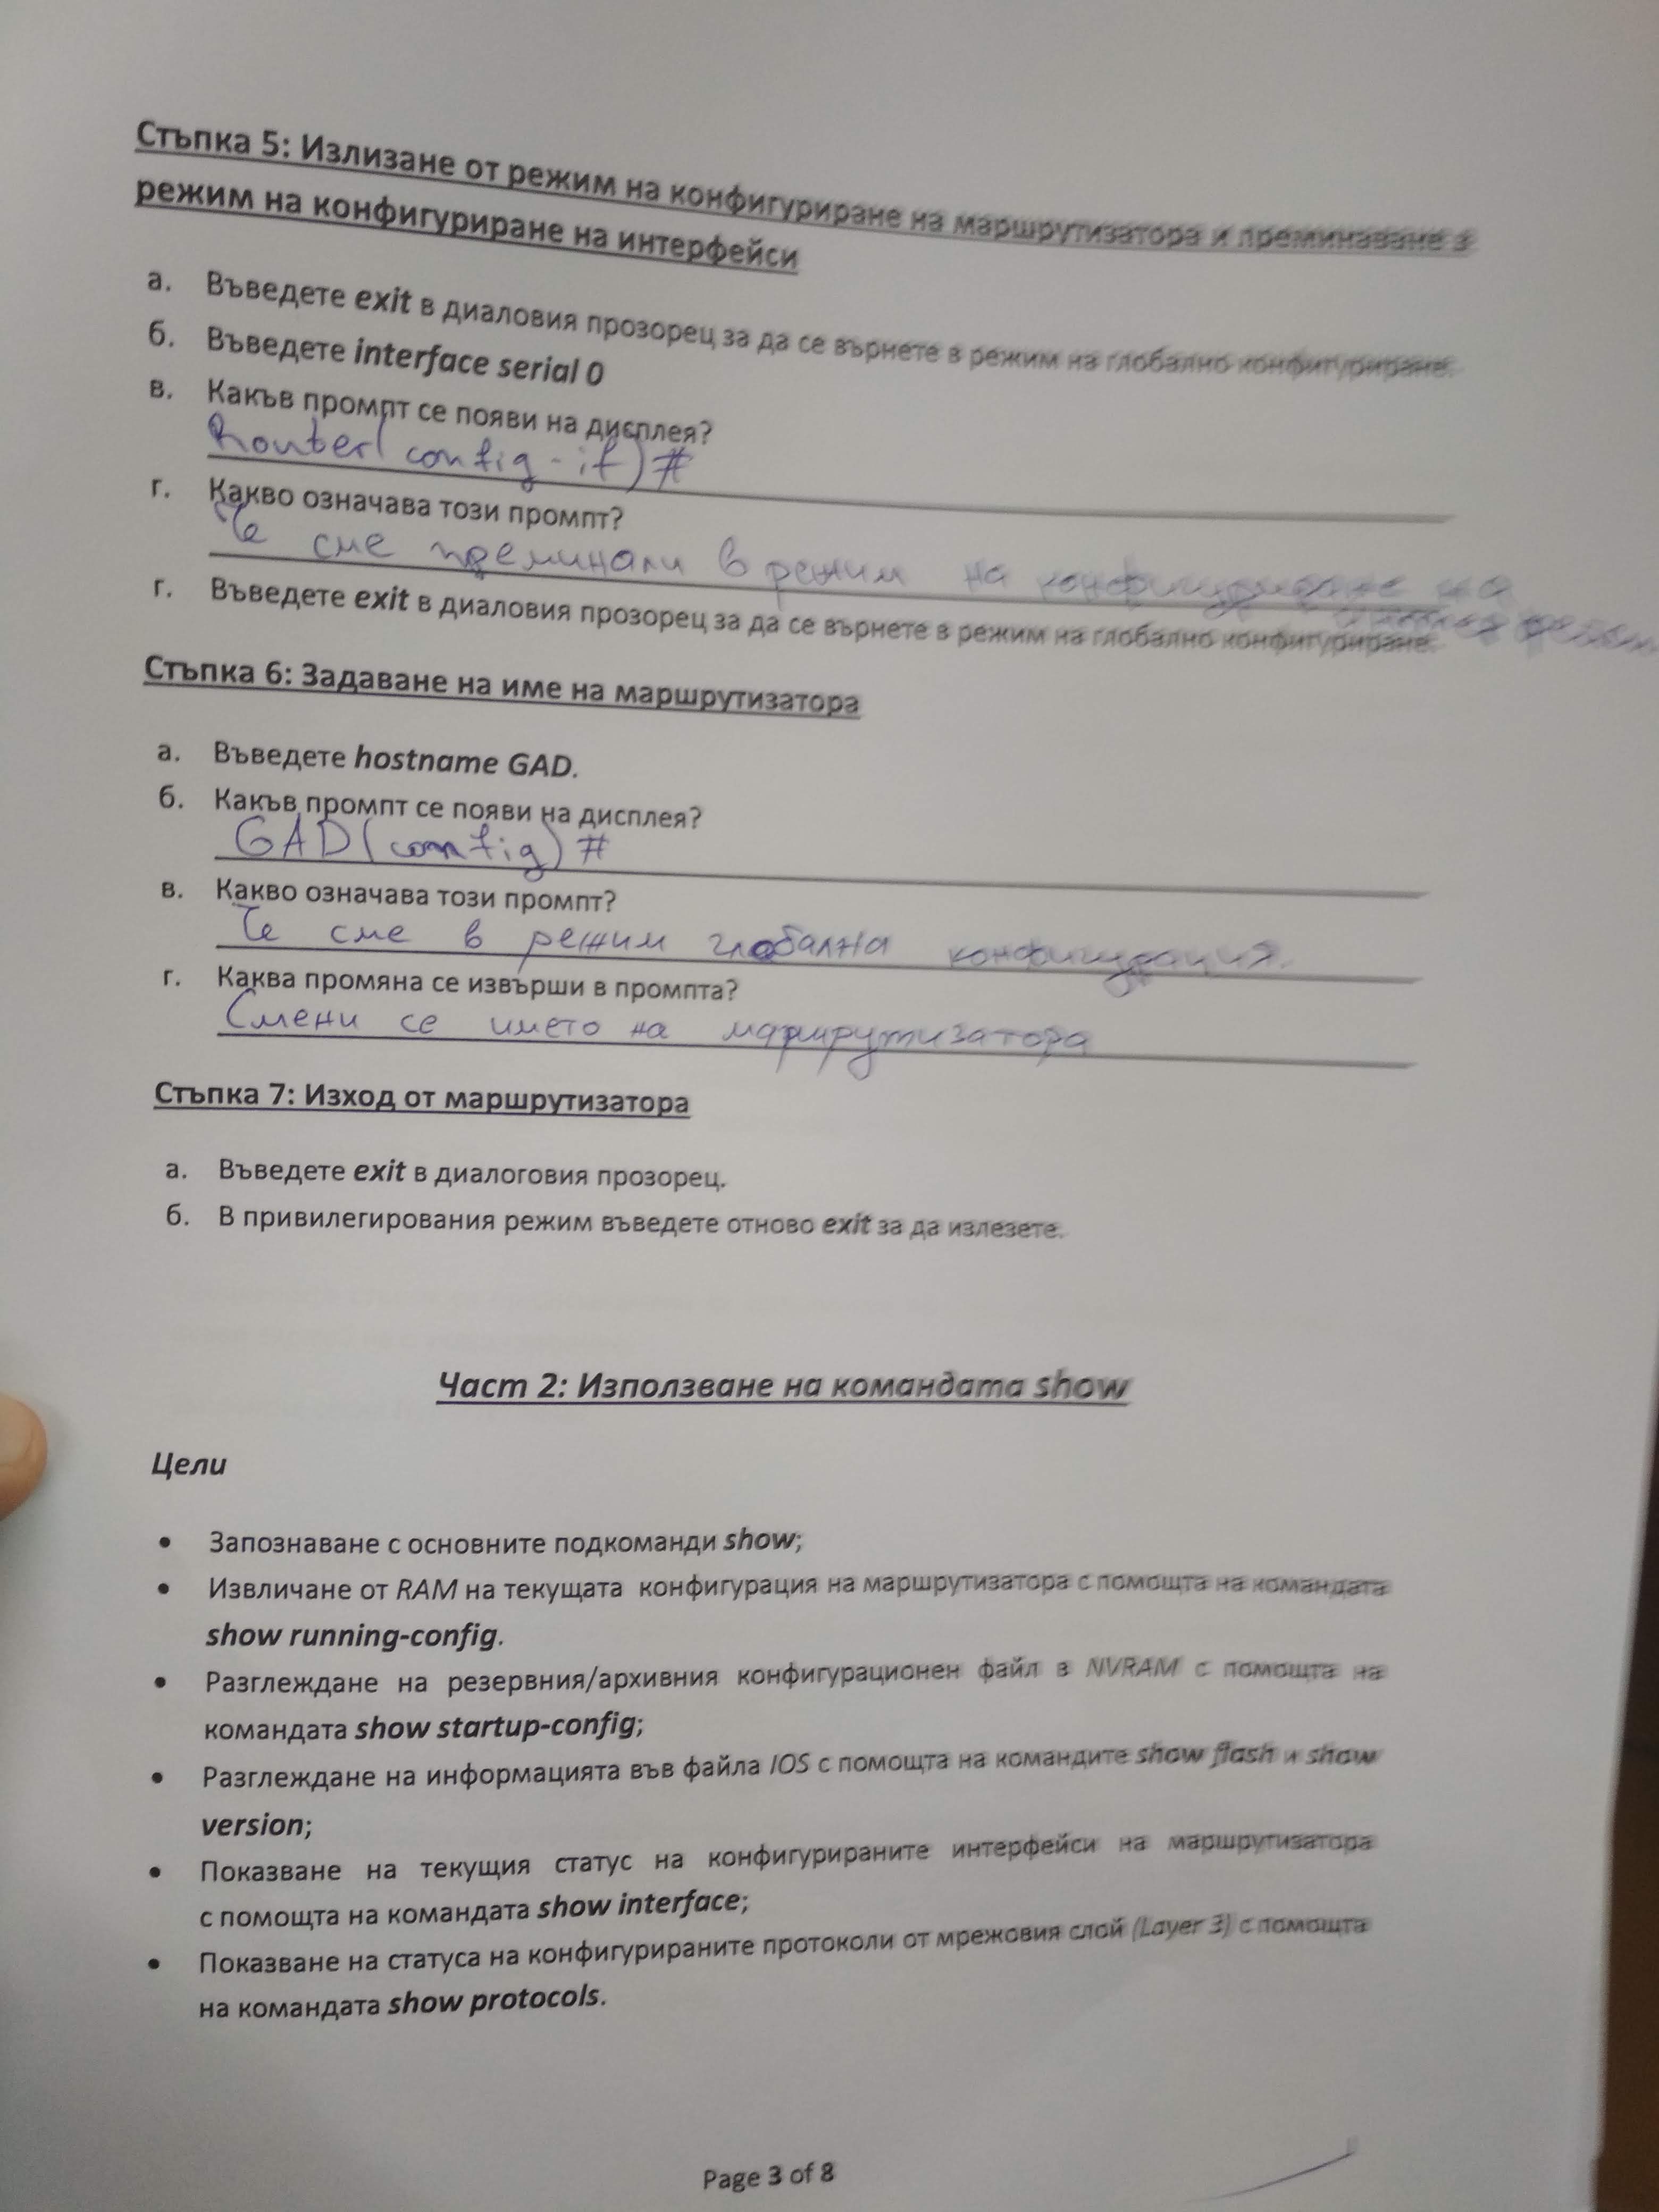 Стъпка 5: Излизане от режим на конфигуриране на маршрутизатора и преминаване в
режим на конфигуриране на интерфейси
а. Въведете exit в диаловия прозорец за да се върнете в режим на глобално конфигуриране.
б. Въведете interface serial 0
в. Какъв промпт се появи на дисплея?
Router(config-if)#
г. Какво означава този промпт?
Че сме преминали в режим на конфигуриране на
г. Въведете exit в диаловия прозорец за да се върнете в режим на глобално конфигуриране.
Стъпка 6: Задаване на име на маршрутизатора
а. Въведете hostname GAD.
б. Какъв промпт се появи на дисплея?
GAD(config)#
в. Какво означава този промпт?
Че сме в режим глобална конфигурация.
г. Каква промяна се извърши в промпта?
Смени се името на маршрутизатора
Стъпка 7: Изход от маршрутизатора
а. Въведете exit в диалоговия прозорец.
б. В привилегирования режим въведете отново exit за да излезете.
Част 2: Използване на командата show
Цели
• Запознаване с основните подкоманди show;
• Извличане от RAM на текущата конфигурация на маршрутизатора с помощта на командата
show running-config.
• Разглеждане на резервния/архивния конфигурационен файл в NVRAM с помощта на
командата show startup-config;
• Разглеждане на информацията във файла IOS с помощта на командите show flash и show
version;
• Показване на текущия статус на конфигурираните интерфейси на маршрутизатора
с помощта на командата show interface;
• Показване на статуса на конфигурираните протоколи от мрежовия слой (Layer 3) с помощта
на командата show protocols.
Page 3 of 8